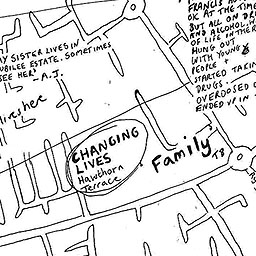 MY SISTER LIVES IN
JUBILEE ESTATE. SOMETIMES
SEE HER
- A.J.
lives here
FRANCIS
OK AT THE TIME
BUT ALL ON
AND ALCOHOL
OF LIFE IN THERE
HUNG OUT
WITH YOUNG
PEOPLE +
STARTED TAKIN
DRUGS.
OVERDOSED
ENDED UP IN
CHANGING
LIVES
Hawthorn
Terrace
Family
T8